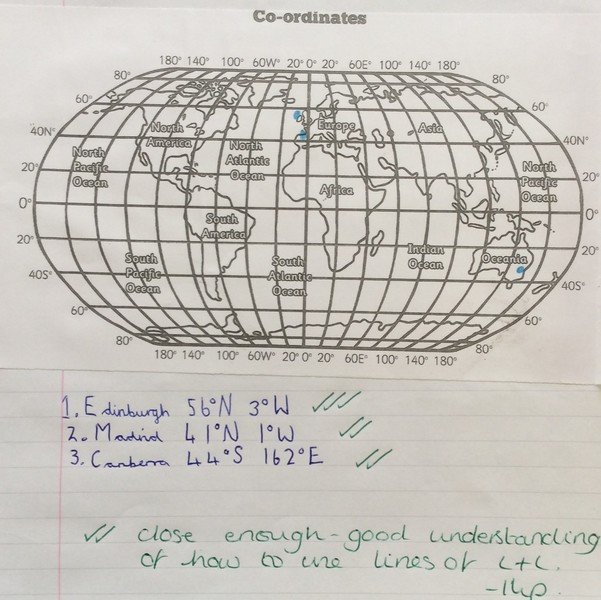 Co-ordinates
180° 140° 100° 60W° 20° 0° 20° 60E° 100° 140° 180°
80° 80°
60° 60°
40N° 40N°
20° 20°
0° 0°
20° 20°
40S° 40S°
60° 60°
80° 80°
North
America
Europe
Asia
North
Pacific
Ocean
North
Atlantic
Ocean
North
Pacific
Ocean
Africa
South
America
South
Pacific
Ocean
South
Atlantic
Ocean
Indian
Ocean
Oceania
180° 140° 100° 60W° 20° 0° 20° 60E° 100° 140° 180°
1. Edinburgh 56°N 3°W ✓✓✓
2. Madrid 41°N 1°W ✓✓
3. Canberra 44°S 162°E ✓✓
✓✓ close enough - good understanding
of how to use lines of L+L.